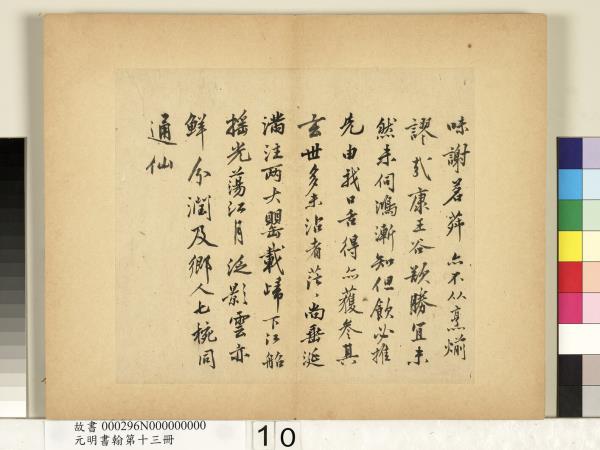 味謝茗荈亦不從烹煎
謬哉康王谷歎勝宜未
然未伺鴻漸知但飲必推
先由我口舌得亦獲參其
玄世多未沾者茫〻尚垂涎
滿注兩大罌載歸下江船
搖光蕩江月泛影雲亦
鮮分潤及鄉人七椀同
通仙
故書 000296N000000000
元明書翰第十三冊
10